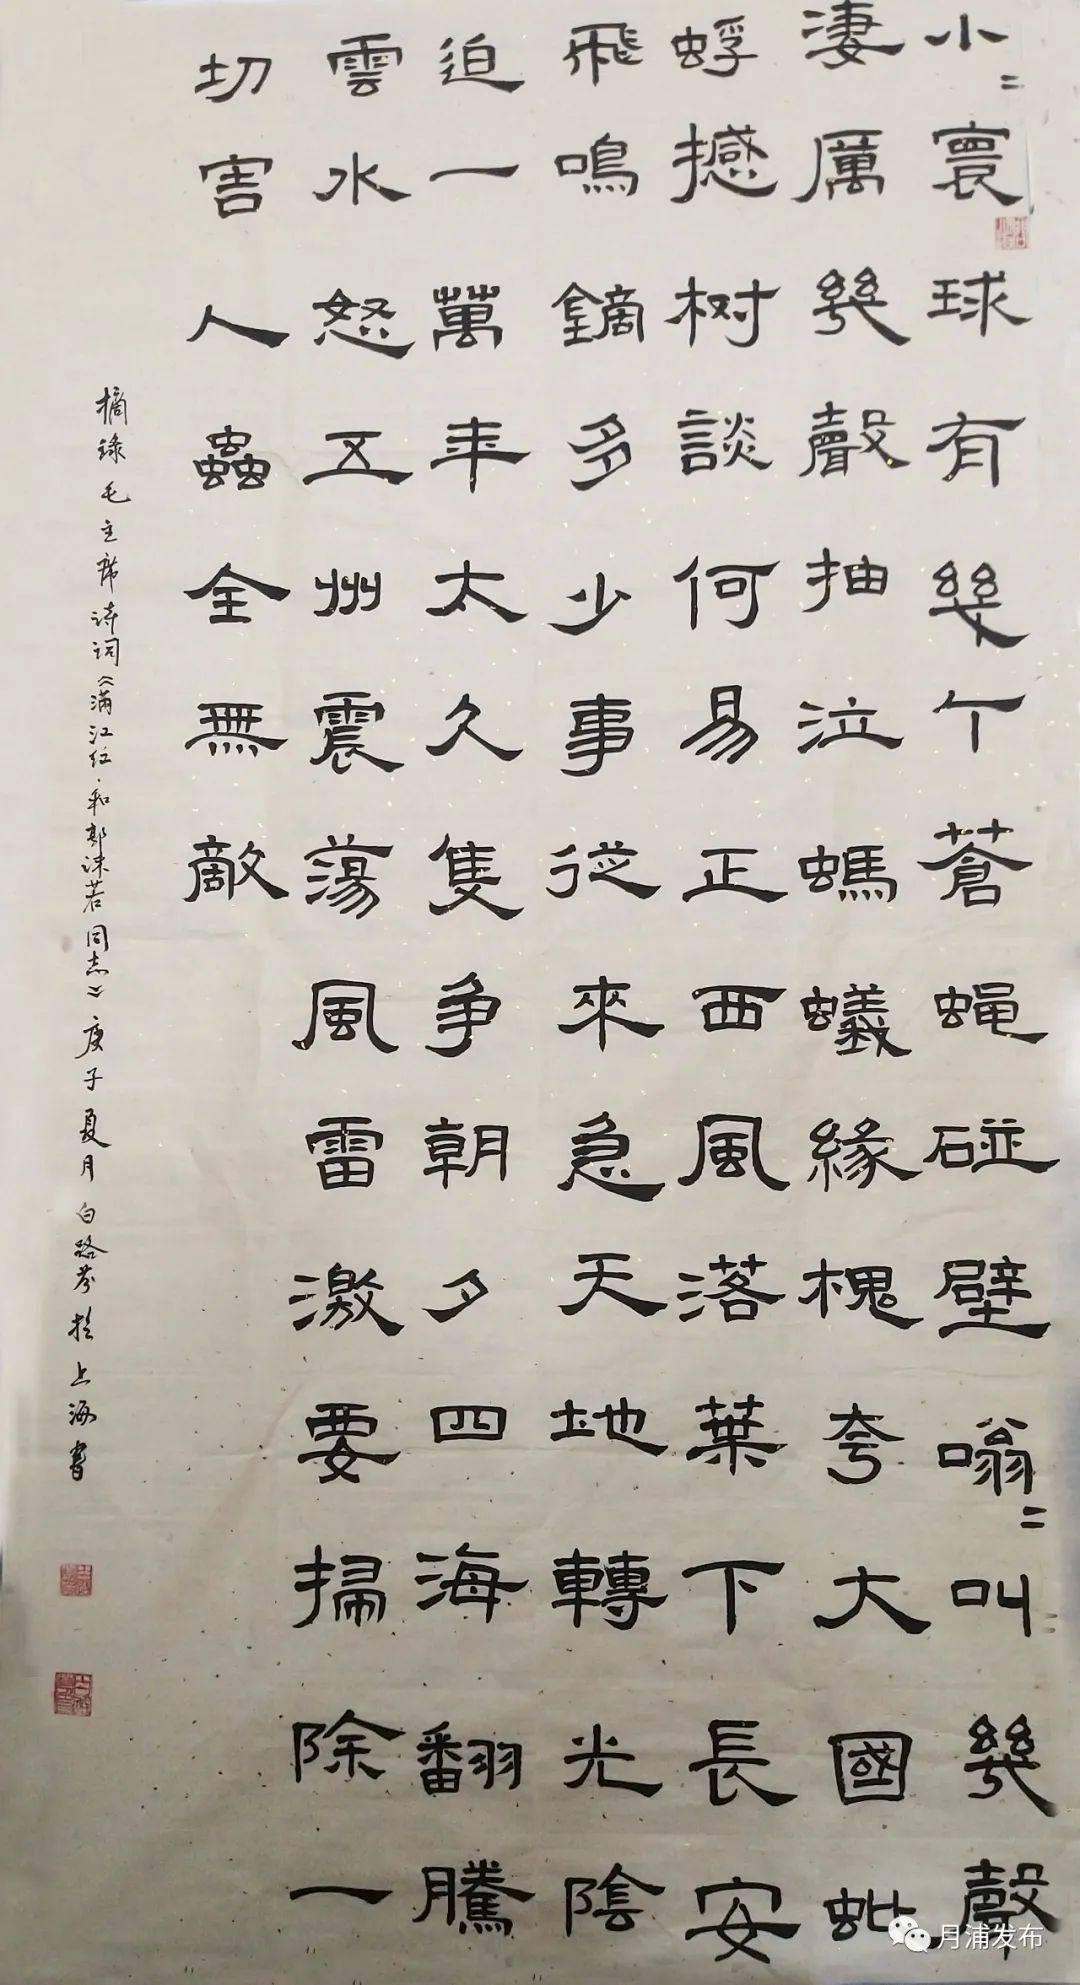 小〻寰球有幾个蒼蝇碰壁嗡〻叫幾聲
淒厲幾聲抽泣螞蟻緣槐夸大國蚍
蜉撼树談何易正西風落葉下長安
飛鳴鏑多少事從來急天地轉光陰
迫一萬年太久隻争朝夕四海翻騰
雲水怒五州震蕩風雷激要掃除一
切害人蟲全無敵
摘錄毛主席诗词《满江红·和郭沫若同志》庚子夏月白路芬於上海書
月浦发布